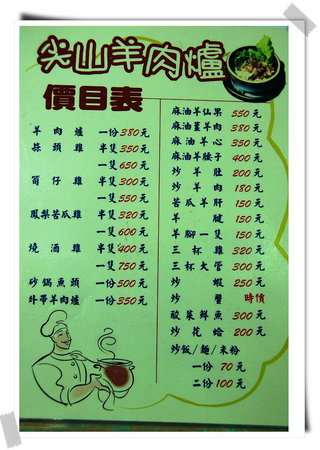 尖山羊肉爐
價目表
羊肉爐 一份380元
蒜頭雞 半隻350元
一隻650元
筍仔雞 半隻300元
一隻550元
鳳梨苦瓜雞 半隻320元
一隻600元
燒酒雞 半隻400元
一隻750元
砂鍋魚頭 一份500元
外帶羊肉爐 一份350元
麻油羊仙果 550元
麻油薑羊肉 380元
麻油羊心 350元
麻油羊腰子 400元
炒羊肚 200元
炒羊肉 180元
苦瓜羊肝 150元
羊腱 150元
羊腳一隻 150元
三杯雞 320元
三杯大管 300元
炒蝦 250元
炒蟹 時價
酸菜鮮魚 300元
炒花蛤 200元
炒飯/麵/米粉
一份 70元
二份100元